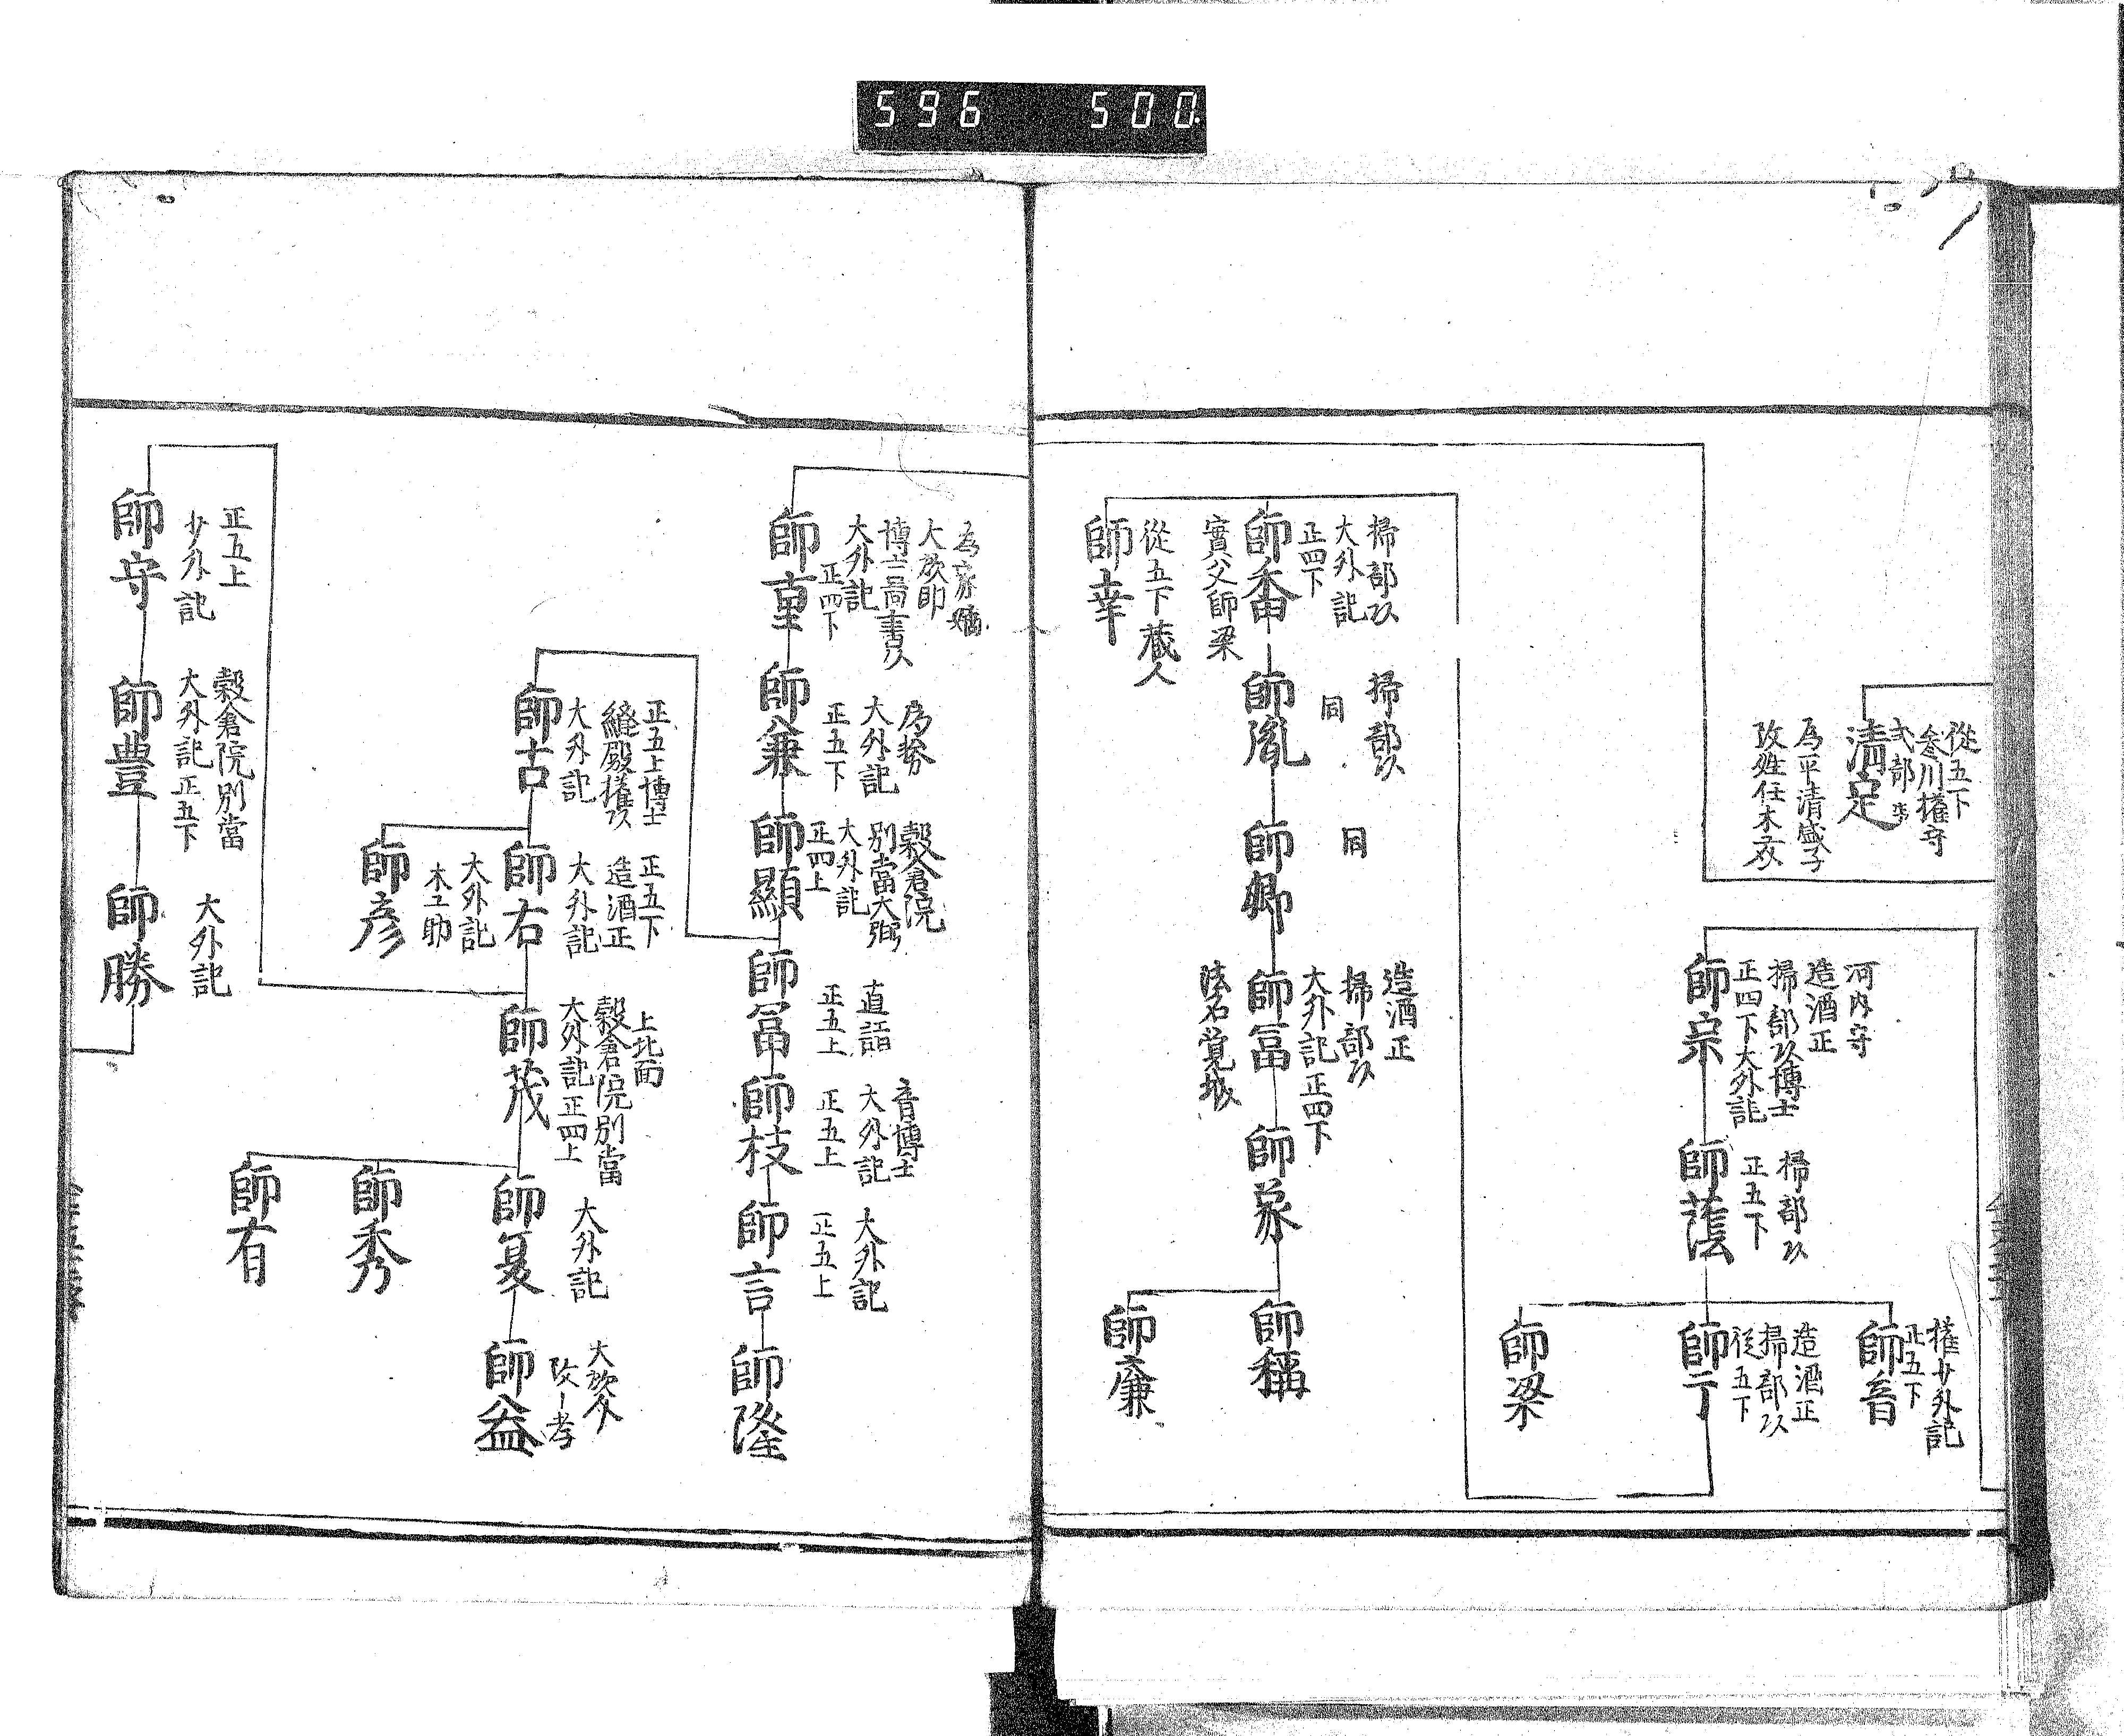 596 500
従五下
参川権守
式部
清定
為平清盛子
改姓任木
河内守
造酒正
掃部頭博士
正四下大外記
師宗
掃部頭
正五下
師蔭
権少外記
正五下
師音
造酒正
掃部頭
従五下
師丁
師梁
掃部頭
大外記
正四下
師香
實父師梁
従五下蔵人
師幸
掃部頭
同
師胤
同
師郷
造酒正
掃部頭
大外記正四下
師冨
法名覚城
師象
師稱
師廉
為家嫡
大炊助
博士啚書頭
大外記
正四下
師重
大外記
正五下
師兼
穀倉院
別當大弼
大外記
正四上
師顯
直詣
正五上
師冨
音博士
大外記
正五上
師枝
大外記
正五上
師言
師隆
正五上博士
縫殿権頭
大外記
師古
正五下
造酒正
大外記
師右
大外記
木工助
師彦
上北面
穀倉院別當
大外記正四上
師茂
大外記
師夏
師秀
師有
大炊介
改ー孝
師益
正五上
少外記
師守
穀倉院別當
大外記正五下
師豊
大外記
師勝